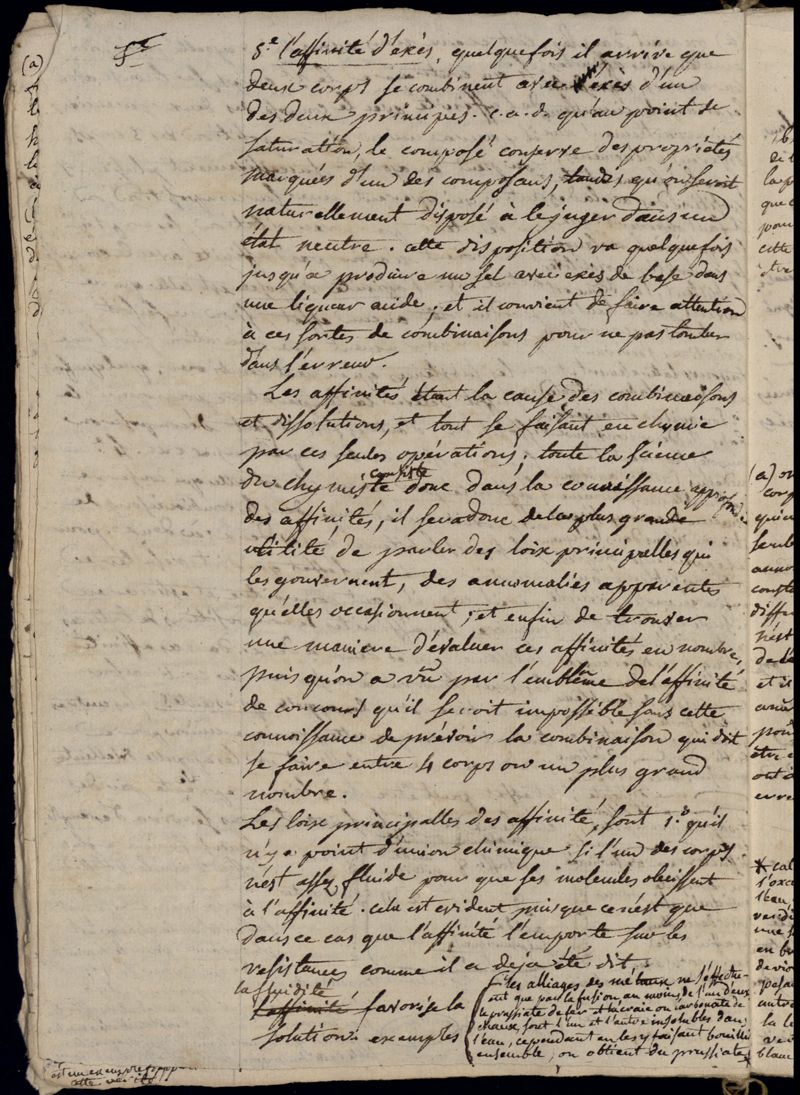 5.e
5.e l'affinité d'exès, quelquefois il arrive que
deux corps se combinent avec exès d'un
des deux principes. c. a. d. qu'au point de
saturation, le composé conserve des propriétés
marquées d'un des composans, tandis qu'on seroit
naturellement disposé à le juger dans un
état neutre. cette disposition va quelquefois
jusqu'a produire un sel avec exès de base dans
une liqueur acide; et il convient de faire attention
à ces sortes de combinaisons pour ne pas tomber
dans l'erreur.
Les affinités étant la cause des combinaisons
et dissolutions, et tout se faisant en chymie
par ces seules opérations; toute la science
du chymiste consiste donc dans la connoissance
des affinités, il sera donc de la plus grande
utilité de parler des loix principalles qui
les gouvernent, des annomalies apparentes
qu'elles occasionnent; et enfin de trouver
une maniere d'évaluer ces affinités en nombre,
puis qu'on a vu par l'emblême de l'affinité
de concours qu'il seroit impossible sans cette
connoissance de prévoir la combinaison qui doit
se faire entre 4 corps ou un plus grand
nombre.
Les loix principalles des affinité, sont 1.o qu'il
n'y a point d'union chimique si l'un des corps
n'est assez fluide pour que ses molecules obeissent
à l'affinité. cela est evident puisque ce n'est que
dans ce cas que l'affinité l'emporte sur les
resistances comme il a deja été dit.
la fluidité
l'affinité favorise la
solution: exemples
les alliages des métaux ne s'effectu-
ent que par la fusion, au moins, de l'un d'eux
le prussiate de fer et la craie ou carbonate de
chaux, sont l'un et l'autre insolubles dans
l'eau, cependant en les y faisant bouillir
ensemble, on obtient du prussiate
est un exemple
cette verité